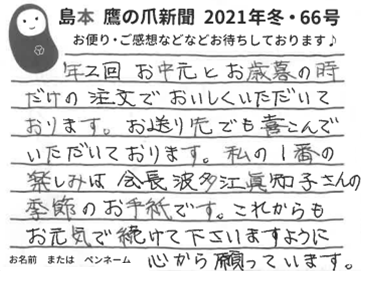 島本 鷹の爪新聞 2021年冬・66号
お便り・ご感想などなどお待ちしております♪
年2回 お中元とお歳暮の時
だけの注文でおいしくいただいて
おります。お送り先でも喜こんで
いただいております。私の1番の
楽しみは会長波多江眞知子さんの
季節のお手紙です。これからも
お元気で続けて下さいますように
お名前 または ペンネーム 心から願っています。